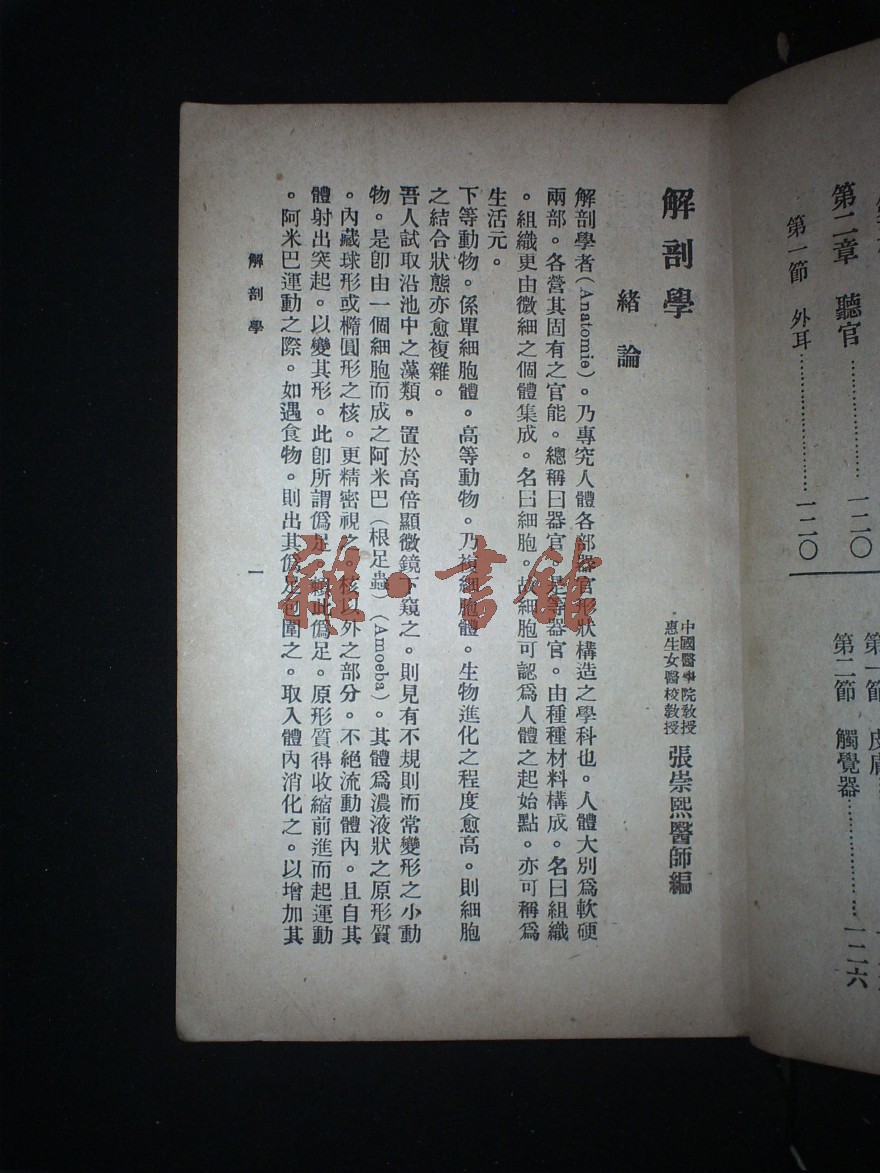 第二章 聽官……………一二〇
第一節 外耳……………一二〇
第一節 皮膚
第二節 觸覺器……………一二六
解剖學
中國醫學院教授
惠生女醫校教授
張崇熙醫師編
緒論
解剖學者(Anatomie)。乃專究人體各部器官形狀構造之學科也。人體大別爲軟硬
兩部。各營其固有之官能。總稱曰器官。是等器官。由種種材料構成。名曰組織
。組織更由微細之個體集成。名曰細胞。故細胞可認爲人體之起始點。亦可稱爲
生活元。
下等動物。係單細胞體。高等動物。乃複細胞體。生物進化之程度愈高。則細胞
之結合狀態亦愈複雜。
吾人試取沿池中之藻類。置於高倍顯微鏡下窺之。則見有不規則而常變形之小動
物。是卽由一個細胞而成之阿米巴(根足蟲)(Amoeba)。其體爲濃液狀之原形質
。內藏球形或橢圓形之核。更精密視之。核以外之部分。不絕流動體內。且自其
體射出突起。以變其形。此卽所謂僞足。轉此僞足。原形質得收縮前進而起運動
。阿米巴運動之際。如遇食物。則出其僞足包圍之。取入體內消化之。以增加其
解剖學
一
雜·書館